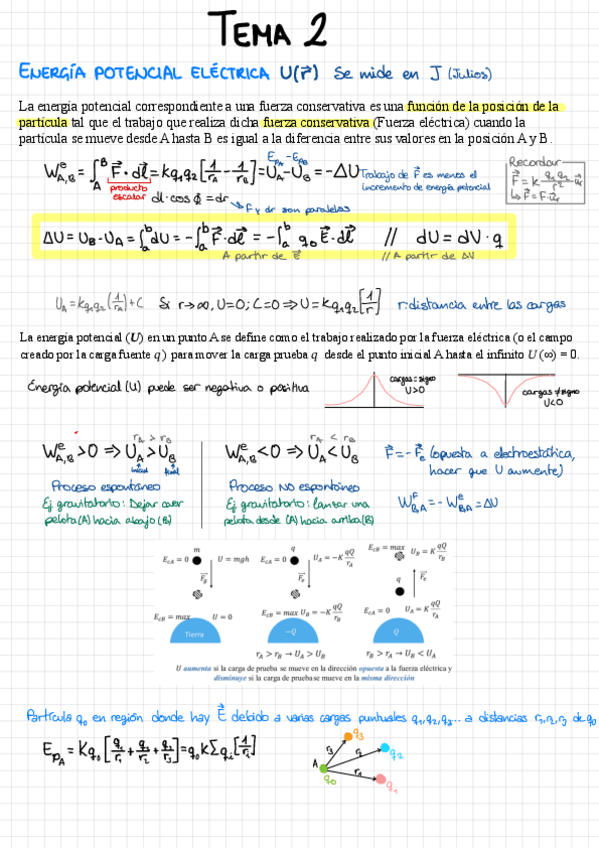 TEMA 2
ENERGÍA POTENCIAL ELÉCTRICA U(r⃗) Se mide en J (Julios)
La energía potencial correspondiente a una fuerza conservativa es una función de la posición de la
partícula tal que el trabajo que realiza dicha fuerza conservativa (Fuerza eléctrica) cuando la
partícula se mueve desde A hasta B es igual a la diferencia entre sus valores en la posición A y B.
E_PA - E_PB
W^e_A,B = ∫_A^B F⃗·dl⃗ = kq₁q₂[1/r_A - 1/r_B] = U_A - U_B = -ΔU Trabajo de F⃗ es menos el
incremento de energía potencial
producto
escalar
dl·cos ϕ = dr
F y dr son paralelas
Recordar
F⃗ = k q₁q₂/r² · u⃗r
↳ F⃗ = F·u⃗r
ΔU = U_B - U_A = ∫_a^b dU = -∫_a^b F⃗·dl⃗ = -∫_a^b q₀ E⃗·dl⃗ // dU = dV·q
A partir de E⃗ // A partir de ΔV
U_A = kq₁q₂(1/r_A) + C Si r→∞, U=0; C=0 ⇒ U = kq₁q₂[1/r] r: distancia entre las cargas
La energía potencial (U) en un punto A se define como el trabajo realizado por la fuerza eléctrica (o el campo
creado por la carga fuente q) para mover la carga prueba q desde el punto inicial A hasta el infinito U(∞) = 0.
Energía potencial (U) puede ser negativa o positiva
cargas = signo
U>0
cargas ≠ signo
U<0
r_A > r_B
W^e_A,B > 0 ⇒ U_A > U_B
inicial final
Proceso espontáneo
Ej gravitatorio: Dejar caer
pelota (A) hacia abajo (B)
r_A < r_B
W^e_A,B < 0 ⇒ U_A < U_B
Proceso NO espontáneo
Ej gravitatorio: lanzar una
pelota desde (A) hacia arriba (B)
F⃗ = -F⃗e (opuesta a electroestática,
hacer que U aumente)
W^F_BA = -W^e_BA = ΔU
E_cA = 0 m U = mgh
F⃗g
E_cB = max U = 0
Tierra
E_cA = 0 q U_A = -K qQ/r_A
F⃗e
E_cB = max U_B = -K qQ/r_B
-Q
r_A > r_B → U_A > U_B
E_cB = max U_B = K qQ/r_B
q F⃗e
E_cA = 0 U_A = K qQ/r_A
Q
r_B > r_A → U_B < U_A
U aumenta si la carga de prueba se mueve en la dirección opuesta a la fuerza eléctrica y
disminuye si la carga de prueba se mueve en la misma dirección
Partícula q₀ en región donde hay E⃗ debido a varias cargas puntuales q₁, q₂, q₃... a distancias r₁, r₂, r₃ de q₀
E_PA = Kq₀[q₁/r₁ + q₂/r₂ + q₃/r₃] = q₀k∑qᵢ[1/rᵢ]
q₃
r₃ r₂ q₂
A r₁
q₀ q₁